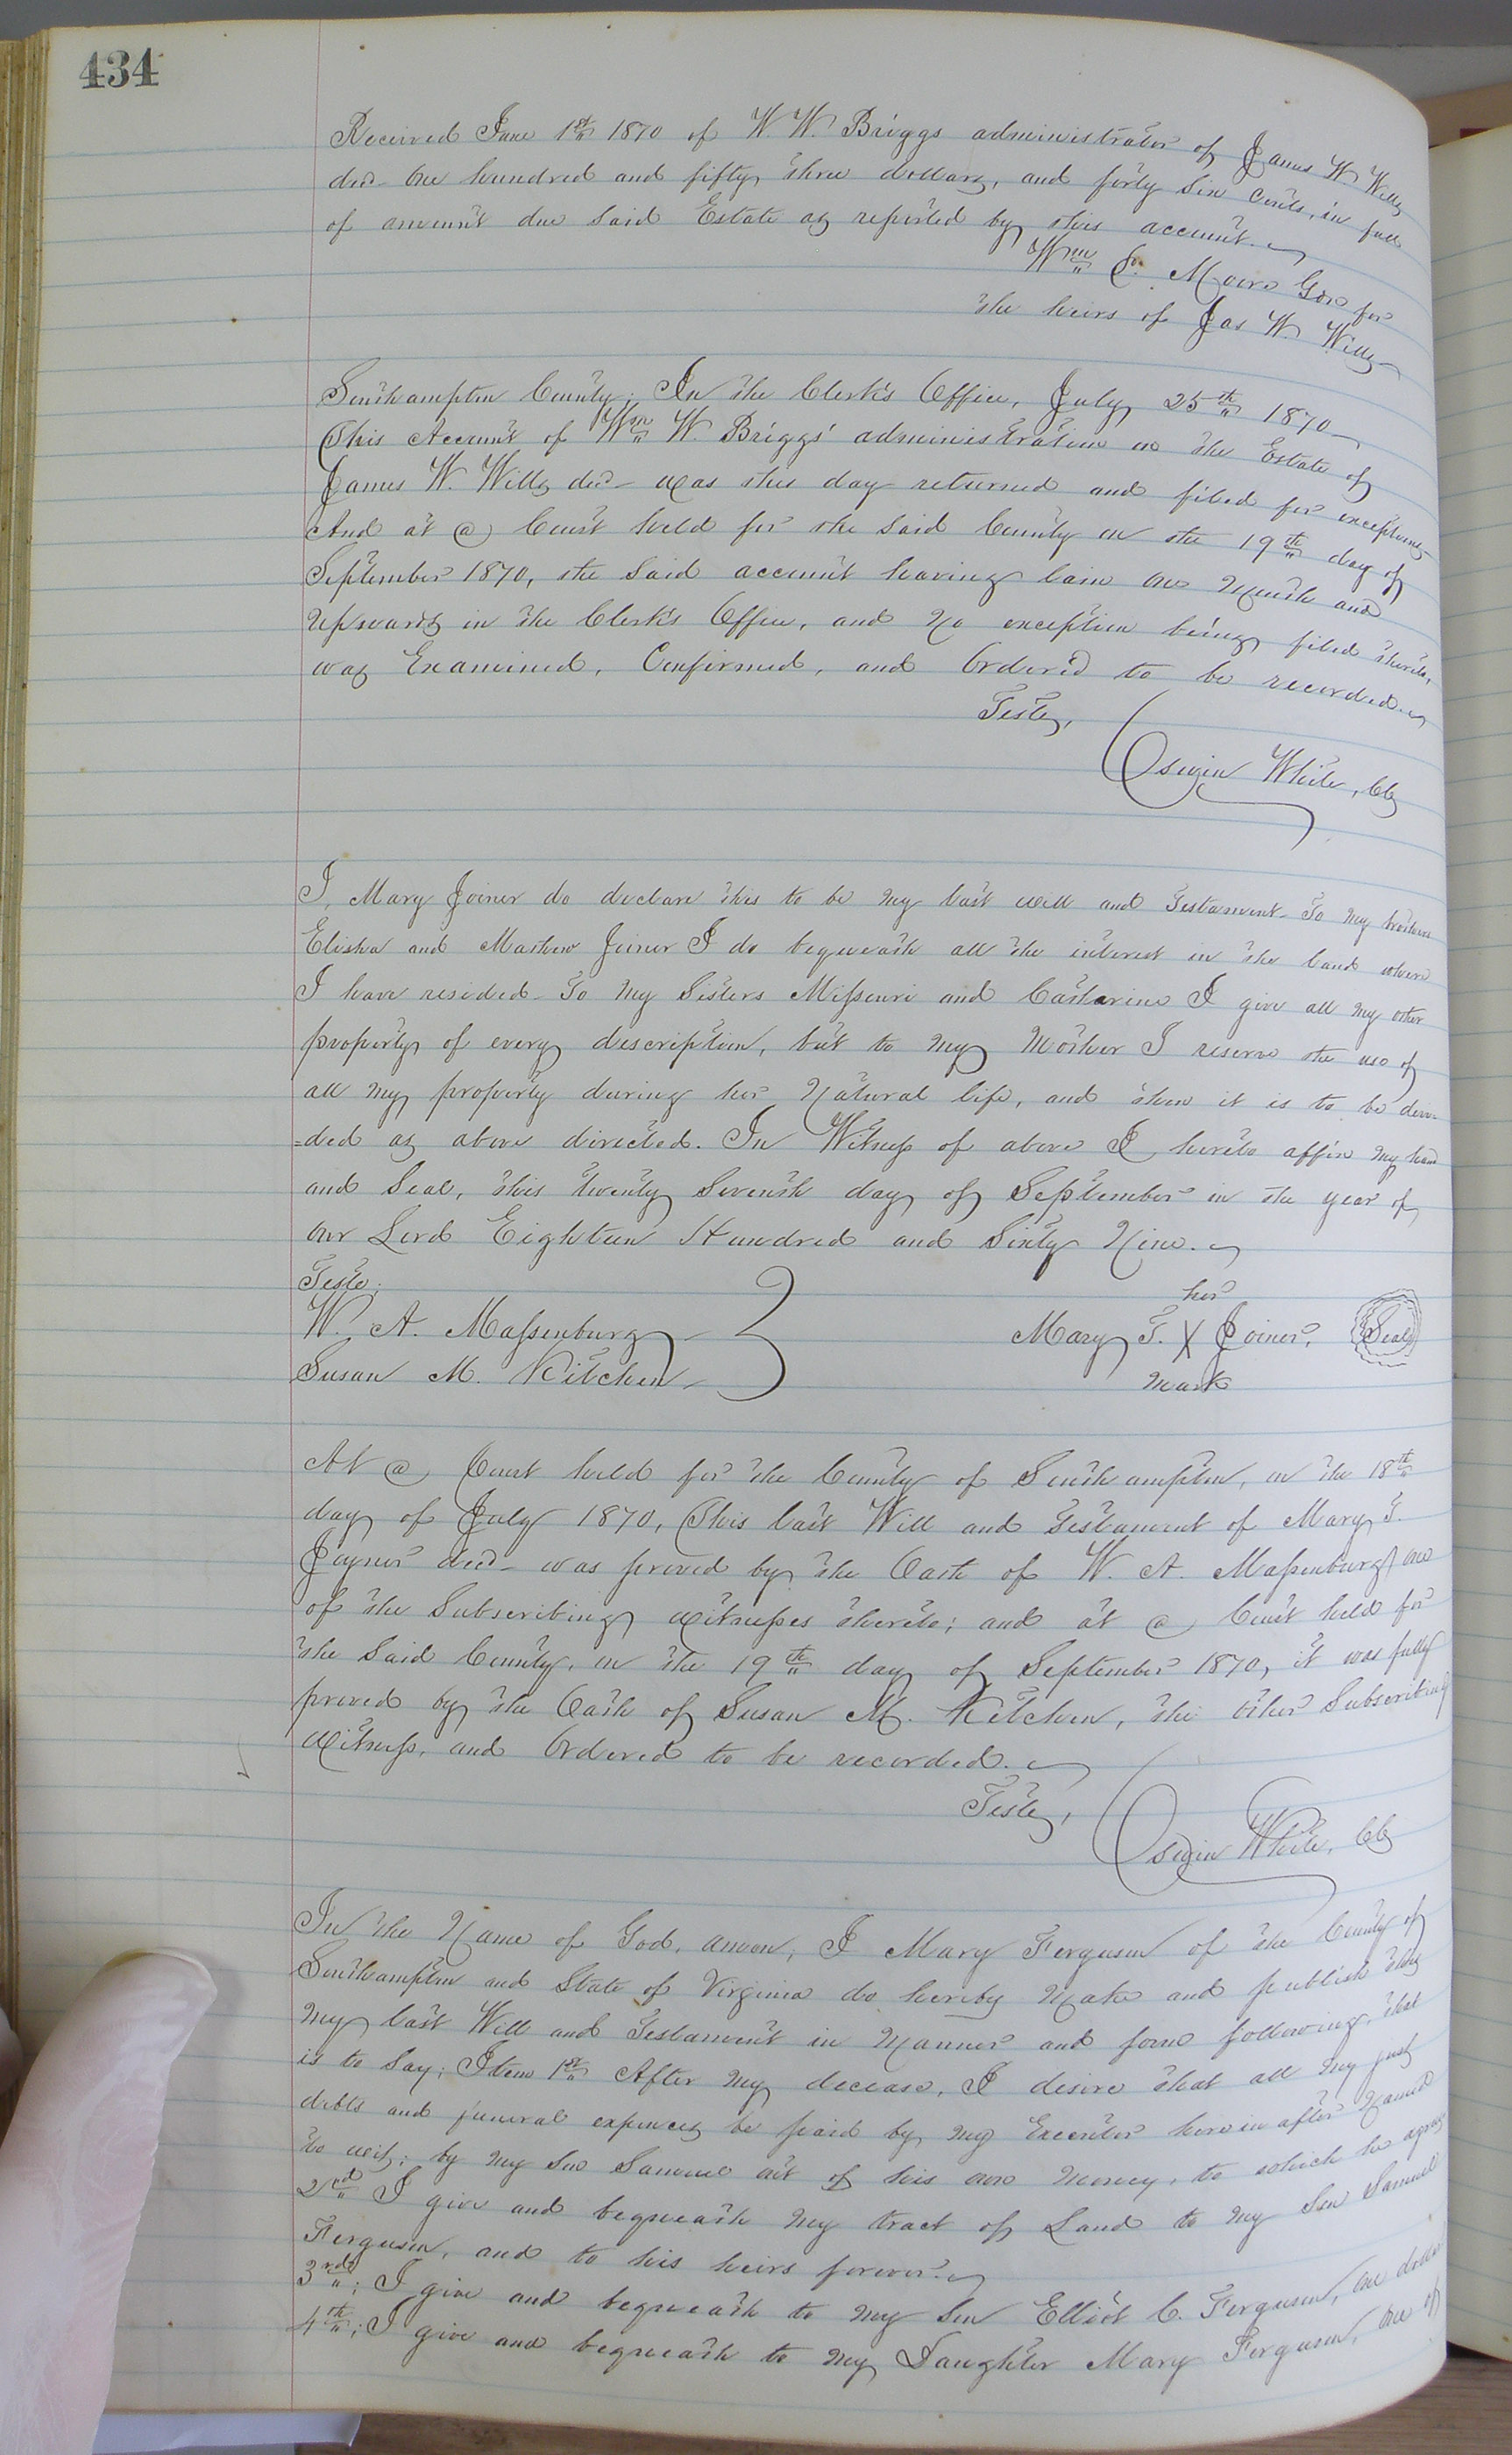 434
Received June 1st 1870 of W. W. Briggs administrator of James W. Wills
decd One hundred and fifty three dollars, and forty Six Cents, in full
of amount due said Estate as reported by this account.
Wm E. Moore Gdn for
the heirs of Jas W. Wills
Southampton County; In the Clerk's Office, July 25th 1870
This Account of Wm W. Briggs' administration on the Estate of
James W. Wills decd was this day returned and filed for exceptions
And at a Court held for the said County on the 19th day of
September 1870, the said account having lain one Month and
Upwards in the Clerk's Office, and No exception being filed thereto,
was Examined, Confirmed, and Ordered to be recorded.
Teste,
Oswin White, Clk
I, Mary Joiner do declare this to be my last will and Testament. To my brothers
Elisha and Mathew Joiner I do bequeath all the interest in the land where
I have resided. To my Sisters Missouri and Catharine I give all my other
property of every description, but to my Mother I reserve the use of
all my property during her Natural life, and then it is to be divi-
=ded as above directed. In Witness of above I hereto affix my hand
and Seal, this twenty Seventh day of September in the year of
our Lord Eighteen Hundred and Sixty Nine.
Teste;
her
W. A. Massenburg
Mary T. X Joiner. Seal
Susan M. Kitchen
mark
At a Court held for the County of Southampton, on the 18th
day of July 1870, This last Will and Testament of Mary T.
Joyner decd was proved by the Oath of W. A. Massenburg one
of the Subscribing witnesses thereto; and at a Court held for
the Said County, on the 19th day of September 1870, it was fully
proved by the Oath of Susan M. Kitchen, the other Subscribing
Witness, and Ordered to be recorded.
Teste,
Oswin White, Clk
In the Name of God, amen, I Mary Ferguson of the County of
Southampton and State of Virginia do hereby Make and publish this
my last Will and Testament in Manner and form following, that
is to Say; Item 1st After my decease, I desire that all my just
debts and funeral expences be paid by my Executor herein after Named
to wit; by my Son Samuel out of his own money, to which he agrees
2nd I give and bequeath my tract of Land to my Son Samuel
Ferguson, and to his heirs forever.
3rd; I give and bequeath to my Son Elliot C. Ferguson, one dollar
4th; I give and bequeath to my Daughter Mary Ferguson, one of